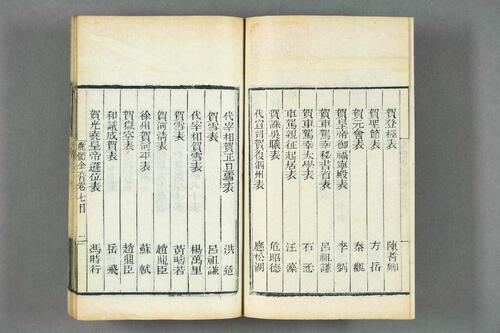 賀登極表 陳耆卿
賀聖節表 方岳
賀元會表 秦觀
賀皇帝御福寧殿表 李劉
賀車駕幸秘書省表 呂祖謙
賀車駕幸太學表 石𢘆
車駕親征起居表 汪藻
賀誅吳曦表 危昭德
代宣司賀復泗州表 應松湖
代宰相賀正旦雪表 洪适
賀雪表 呂祖謙
代宰相賀雪表 楊萬里
賀雪表 黃疇若
賀河清表 趙龍臣
徐州賀河平表 蘇軾
賀獄空表 趙龍臣
和議成賀表 岳飛
賀光堯皇帝遜位表 馮時行
卷七目
二